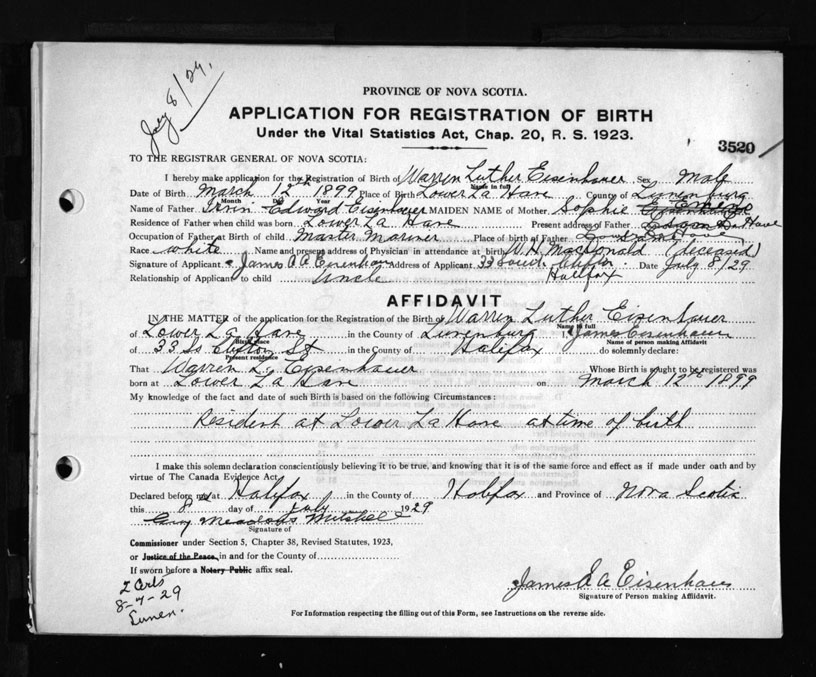 July 8/29.
PROVINCE OF NOVA SCOTIA.
APPLICATION FOR REGISTRATION OF BIRTH
Under the Vital Statistics Act, Chap. 20, R. S. 1923.
3520
TO THE REGISTRAR GENERAL OF NOVA SCOTIA:
I hereby make application for the Registration of Birth of Warren Luther Eisenhauer Sex Male
Name in full
Date of Birth March 12th 1899 Place of Birth Lower La Have County of Lunenburg
Month Day Year
Name of Father Edward Eisenhauer MAIDEN NAME of Mother Sophie
Residence of Father when child was born Lower La Have Present address of Father La Have
Occupation of Father at Birth of child Master Mariner Place of birth of Father
Race white Name and present address of Physician in attendance at birth W.H. Macdonald (deceased)
Signature of Applicant James Eisenhauer Address of Applicant 33 South Clifton Date July 8/29
Relationship of Applicant to child Uncle Halifax
AFFIDAVIT
IN THE MATTER of the application for the Registration of the Birth of Warren Luther Eisenhauer
Name in full
of Lower La Have in the County of Lunenburg I, James Eisenhauer
Birth place Name of person making Affidavit
of 33 So Clifton St in the County of Halifax do solemnly declare:
Present residence
That Warren L. Eisenhauer Whose Birth is sought to be registered was
born at Lower La Have on March 12th 1899
My knowledge of the fact and date of such Birth is based on the following Circumstances:
Resident at Lower La Have at time of birth
I make this solemn declaration conscientiously believing it to be true, and knowing that it is of the same force and effect as if made under oath and by
virtue of The Canada Evidence Act.
Declared before me at Halifax in the County of Halifax and Province of Nova Scotia
this 8th day of July 1929
Guy Meadows Mitchell
Signature of
Commissioner under Section 5, Chapter 38, Revised Statutes, 1923,
or Justice of the Peace in and for the County of
If sworn before a Notary Public affix seal.
2 Certs
8-7-29
Lunen.
James A Eisenhauer
Signature of Person making Affidavit.
For Information respecting the filling out of this Form, see Instructions on the reverse side.